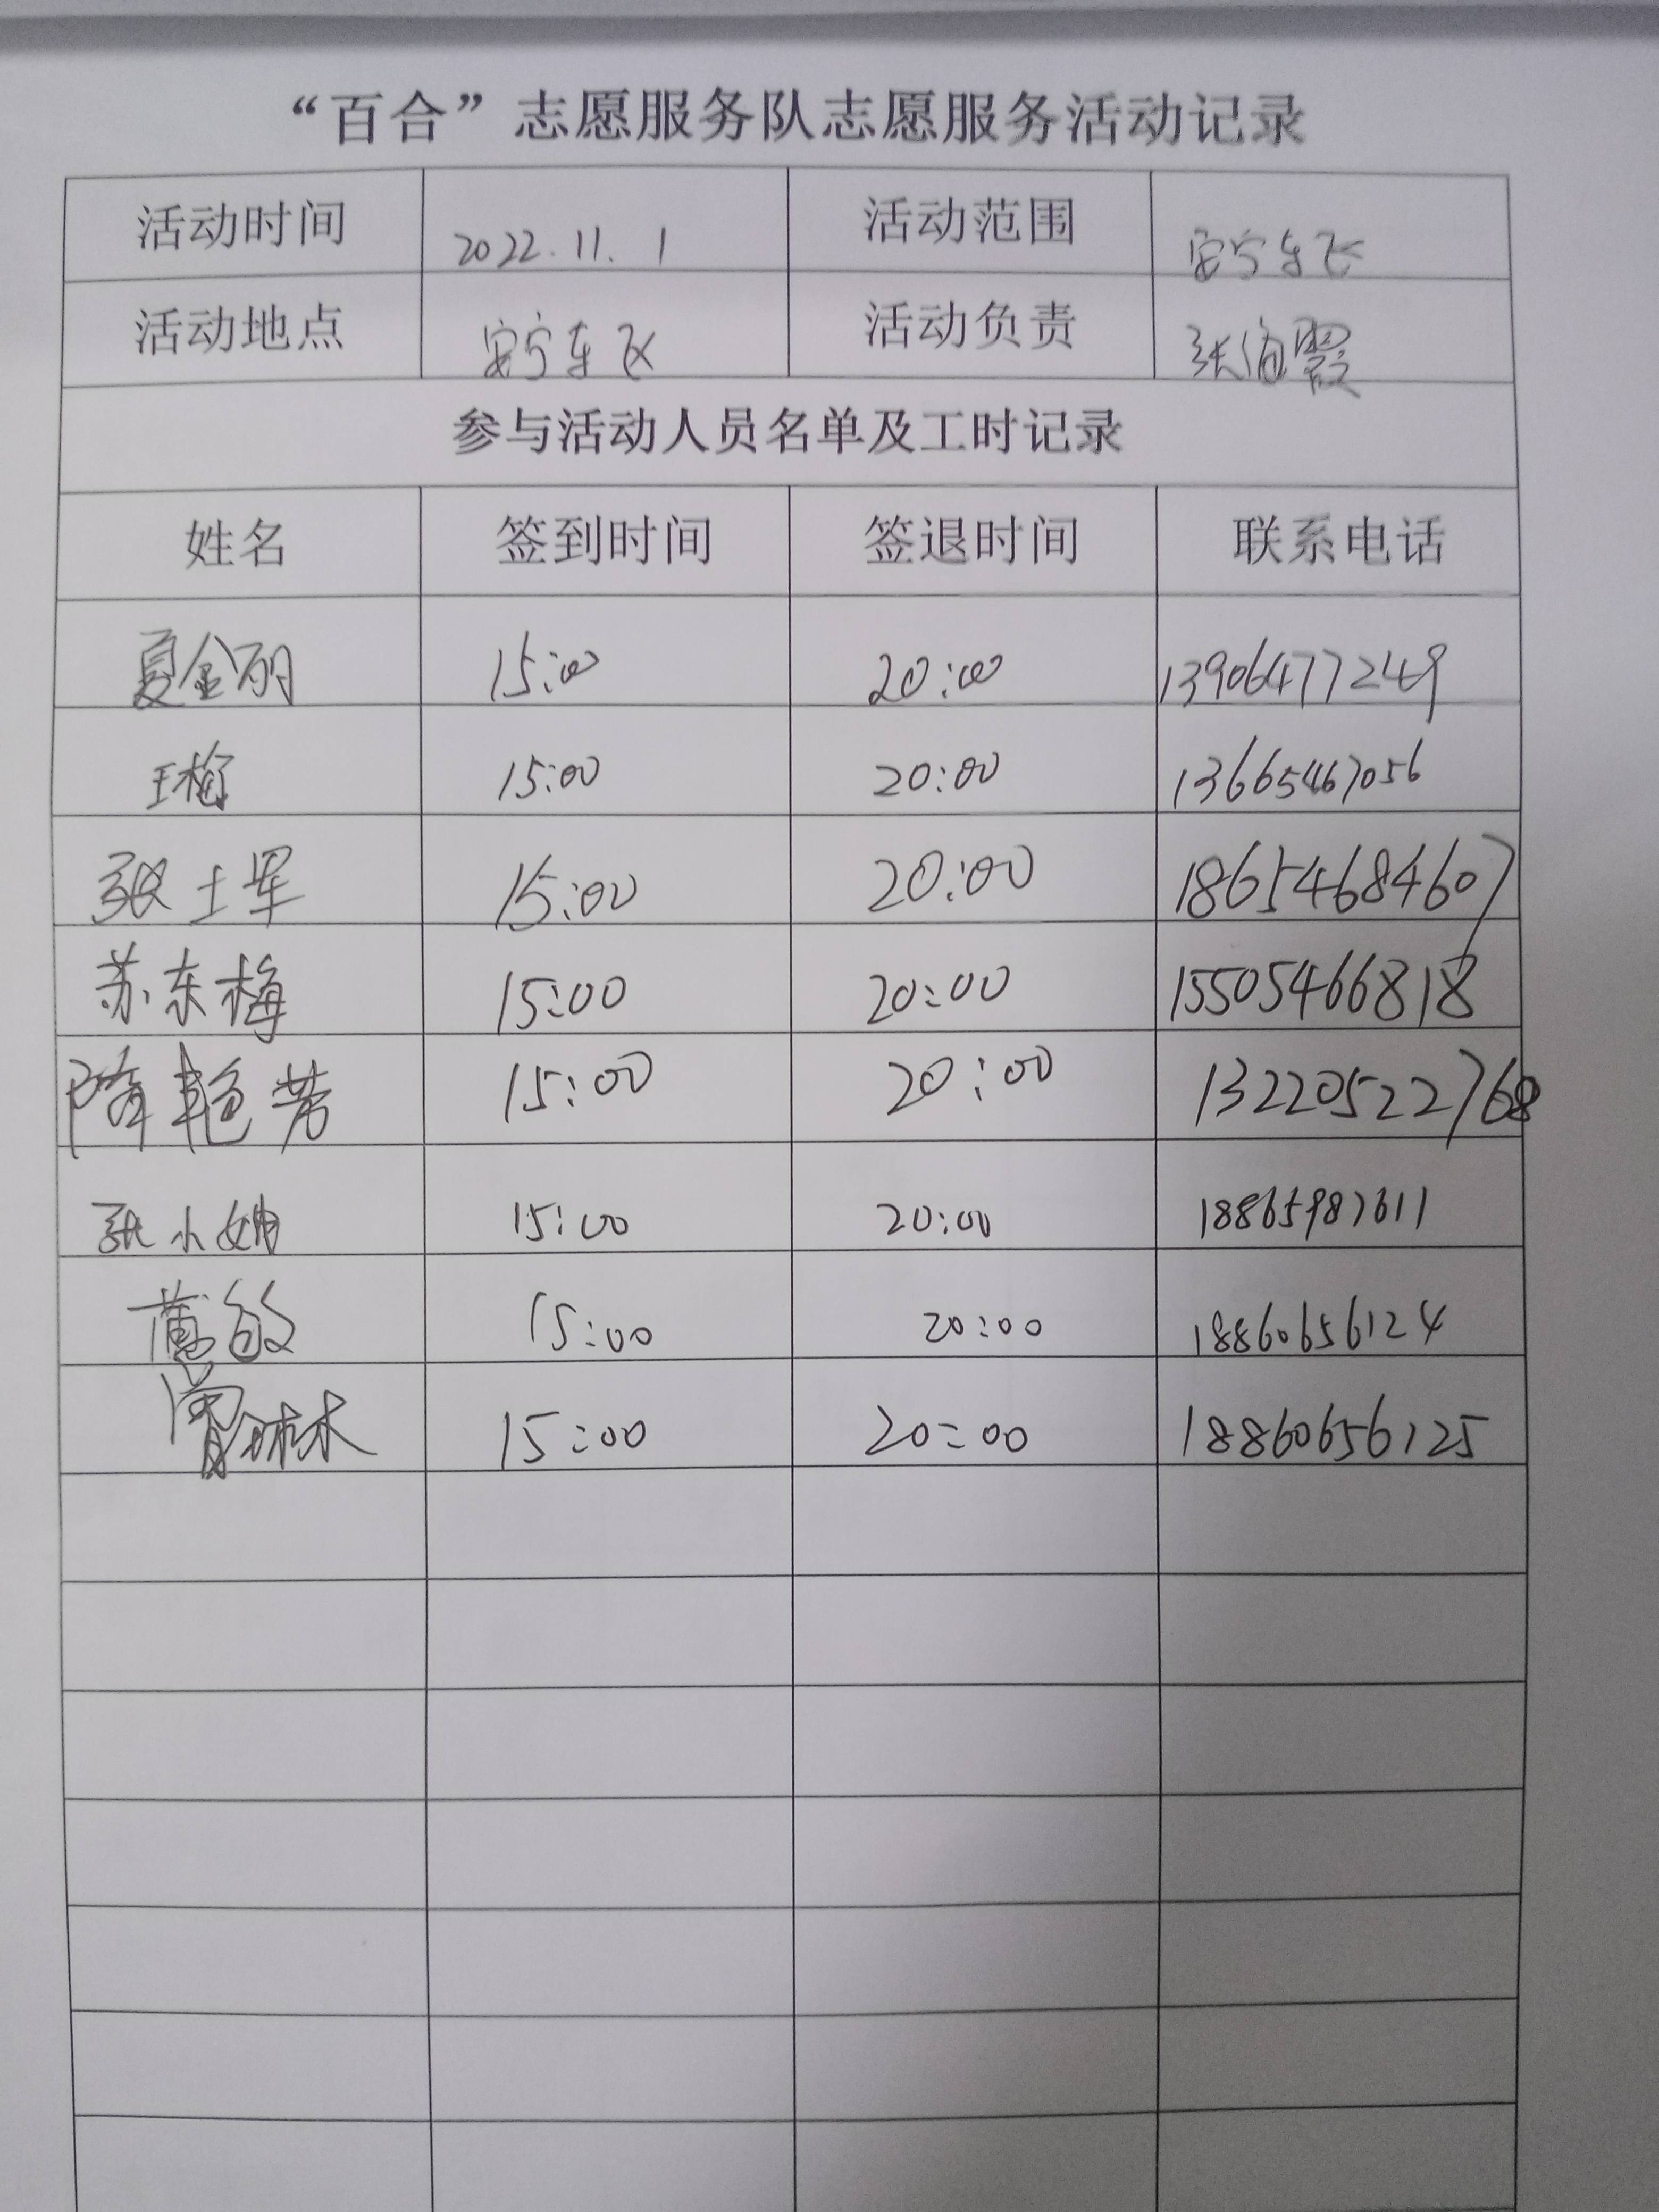 “百合”志愿服务队志愿服务活动记录
活动时间 2022.11.1 活动范围 安宁东飞
活动地点 安宁东飞 活动负责 张海霞
参与活动人员名单及工时记录
姓名 签到时间 签退时间 联系电话
夏金丽 15:00 20:00 13906477249
王梅 15:00 20:00 13665467056
张士军 15:00 20:00 18654684607
苏东梅 15:00 20:00 15505466818
隆艳芳 15:00 20:00 13220522768
张小娜 15:00 20:00 18865987611
敏 15:00 20:00 18860656124
15:00 20:00 18860656125